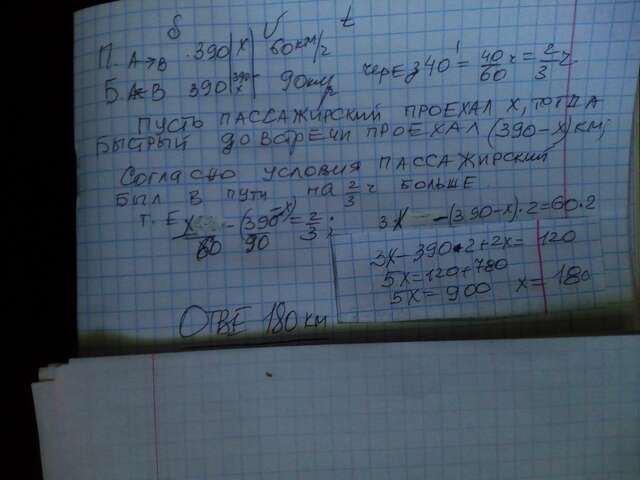 S V t
П. А→В 390 х 60 км/г
Б. А←В 390 390-х 90 км/г через 40' = 40/60 ч = 2/3 ч
ПУСТЬ ПАССАЖИРСКИЙ ПРОЕХАЛ Х, ТОГДА
БЫСТРЫЙ ДО ВСТРЕЧИ ПРОЕХАЛ (390-х) КМ,
СОГЛАСНО УСЛОВИЯ ПАССАЖИРСКИЙ
БЫЛ В ПУТИ НА 2/3 ч БОЛЬШЕ.
Т. Е х/60 - (390-х)/90 = 2/3; 3х - (390-х)·2=60·2
3х-390·2+2х= 120
5х=120+780
5х=900 х= 180
ОТВЕ 180 км